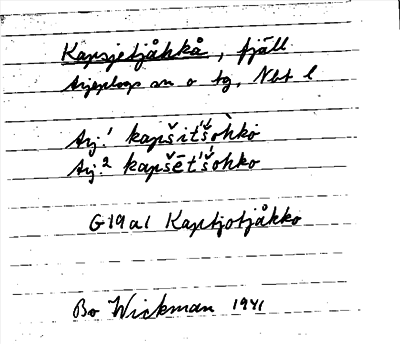 Kapsjetjåkkå, fjäll
Arjeplogs sn o tg, Nbt l
Arj.1 kapšit'šòhko
Arj.2 kapšēt'šohko
G19a1 Kaptjotjåkko
Bo Wickman 1941